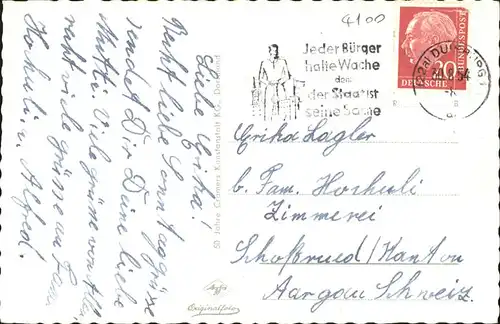 4100
Jeder Bürger
halte Wache
denn
der Staat ist
seine Sache
DEUTSCHE
BUNDESPOST
20
DUISBURG
.8.54
Liebe Erika!
Recht liebe Sonntaggrüsse
sendet Dir Deine liebe
Mutti. Viele grüsse von Allen
recht viele grüsse an Fam.
Hochuli u. Alfred.
50 Jahre Cramers Kunstanstalt KG., Dortmund
Agfa
Originalfoto
Erika Lagler
b. Fam. Hochuli
Zimmerei
Kanton
Aargau Schweiz